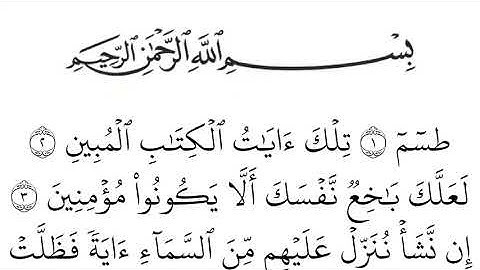 بِسْمِ ٱللَّهِ ٱلرَّحْمَٰنِ ٱلرَّحِيمِ
طسٓمٓ ۝١ تِلْكَ ءَايَٰتُ ٱلْكِتَٰبِ ٱلْمُبِينِ ۝٢
لَعَلَّكَ بَٰخِعٌ نَّفْسَكَ أَلَّا يَكُونُوا۟ مُؤْمِنِينَ ۝٣
إِن نَّشَأْ نُنَزِّلْ عَلَيْهِم مِّنَ ٱلسَّمَآءِ ءَايَةً فَظَلَّتْ